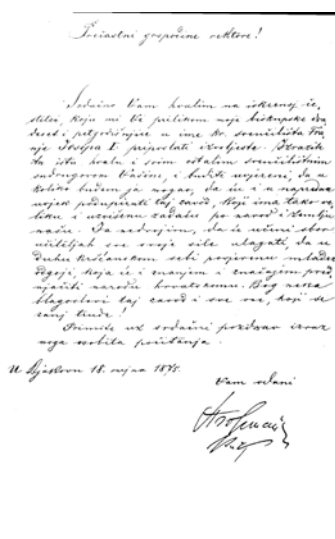 Prečastni gospodine rektore!
Srdačno Vam hvalim na iskrenoj če-
stitci, koju mi Ve prilikom moje biskupske dva-
deset i petgodišnjice u ime kr. sveučilišta Fra-
nje Josipa I. pripos­lati izvoljeste. Izrazite
tu istu hvalu i svim ostalim sveučilištnim
sudrugovom Vašim, i budite uvjereni, da u
koliko budem ja mogao, da ću i u napredak
uvjek podupirati taj zavod, koji ima tako ve-
liku i uzvišenu zadaću po narod i zemlju
našu. Ja nedvojim, da će učeni sbor
učiteljah sve svoje sile ulagati, da u
duhu kršćanskom sebi povjerenu mladež
odgoji, koja će i znanjem i značajem pred-
njačiti narodu hrvatskomu. Bog neka
blagoslovi taj zavod i sve one, koji se
zanj trude!
Primite uz srdačni pozdrav izraz
moga osobita počitanja.
U Djakovu 18. rujna 1875.
Vam odani